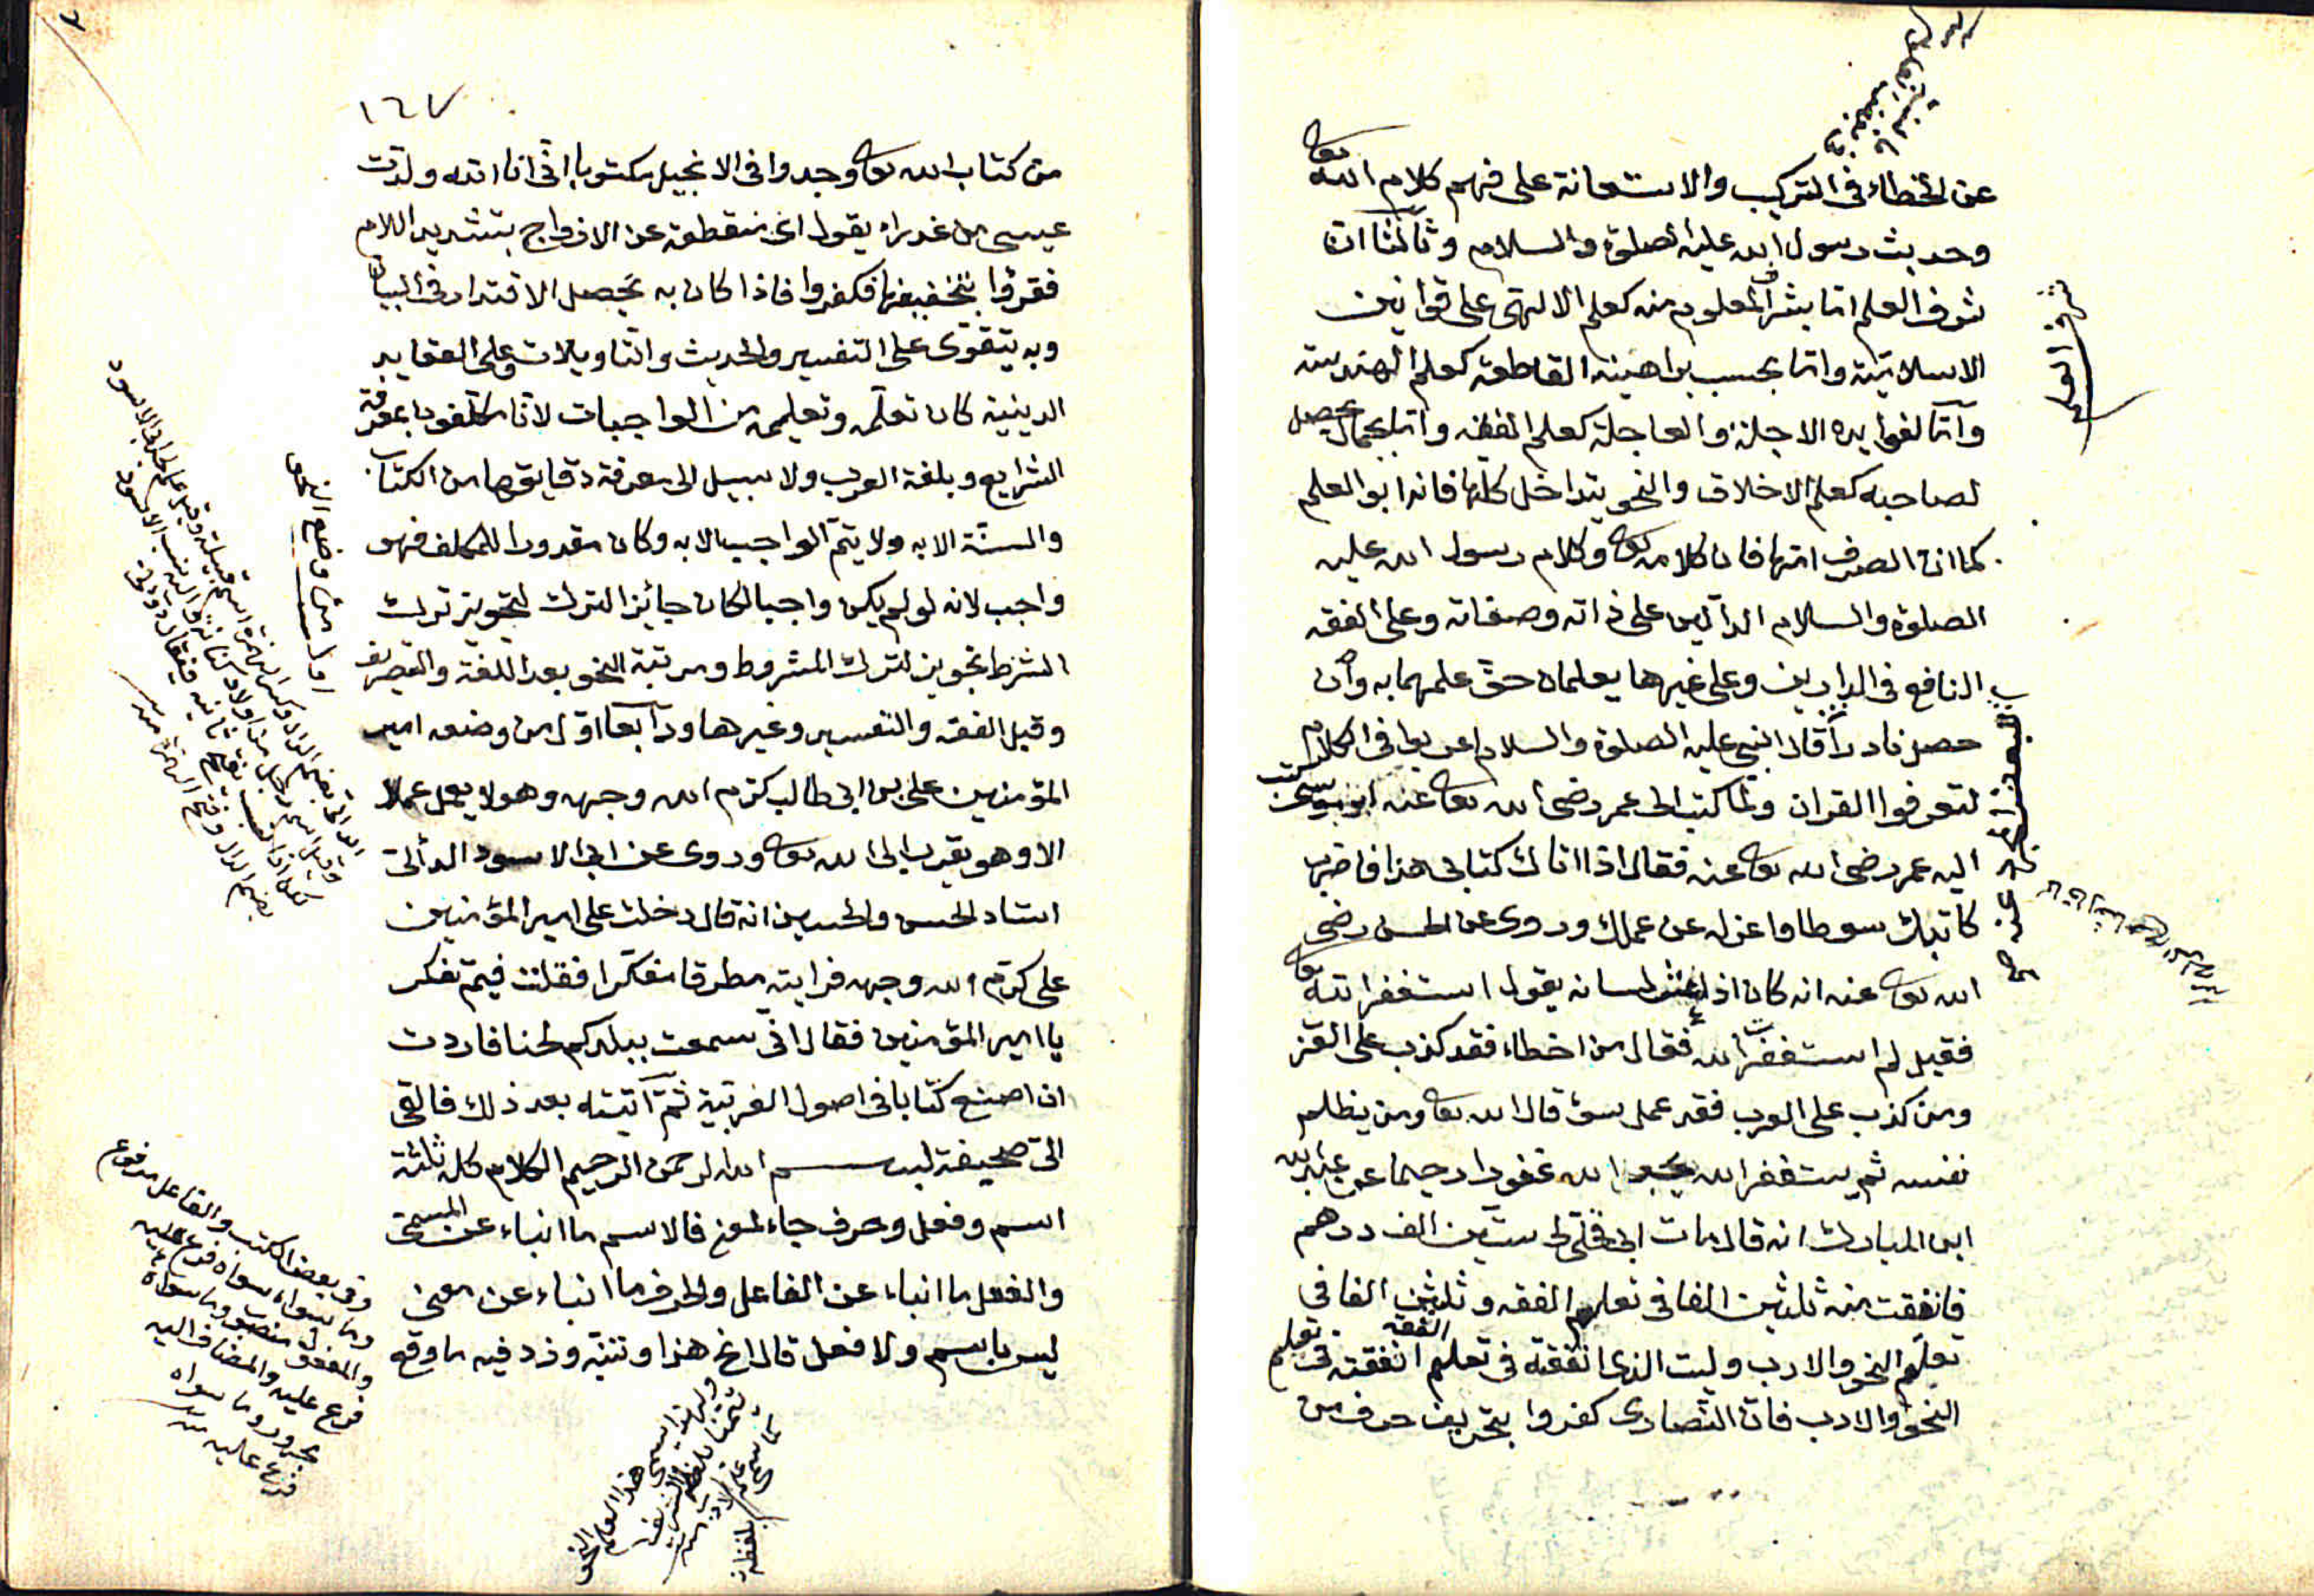 عن الخطاء فى التركيب والاستعانة على فهم كلام الله تعا
وحديث رسول الله عليه الصلوة والسلام وثالثا ان
شرف العلم اما بشرف المعلوم منه كعلم الالهى على قوانين
الاسلامية واما بحسب براهينه القاطعة كعلم الهندسة
واما لفوايده الاجلة والعاجلة كعلم الفقه واما بجمال يحصل
لصاحبه كعلم الاخلاق والنحو يتداخل كلها فانه ابو العلم
كما ان الصرف امها فان كلامه تعا وكلام رسول الله عليه
الصلوة والسلام الدالين على ذاته وصفاته وعلى الفقه
النافع فى الدارين وعلى غيرها يعلمان حق علمهما به وان
حصل نادرا قال النبى عليه الصلوة والسلام اعربوا فى الكلام
لتعرفوا القران ولما كتب الى عمر رضى الله تعا عنه ابو موسى كتب
اليه عمر رضى الله تعا عنه فقال اذا اتاك كتابى هذا فاضرب
كاتبك سوطا واعزله عن عملك وروى عن الحسن رضى
الله تعا عنه انه كان اذا عثر لسانه يقول استغفر الله تعا
فقيل لم استغفرت الله فقال من اخطاء فقد كذب على العرب
ومن كذب على العرب فقد عمل سوء قال الله تعا ومن يظلم
نفسه ثم يستغفر الله يجد الله غفورا رحيما عن عبد الله
ابن المبارك انه قال مات ابى فخلى لى ستين الف درهم
فانفقت منه ثلثين الفا فى تعلم الفقه وثلثين الفا فى
تعلم النحو والادب وليت الذى انفقته فى تعلم الفقه انفقته فى تعلم
النحو والادب فان النصارى كفروا بتحريف حرف من
شرف العلم
١٦٧
من كتاب الله تعا وجدوا فى الانجيل مكتوبا انى انا الله ولدت
عيسى من عذراء يقول اى منقطعة عن الازواج بتشديد اللام
فقرؤا بتخفيفها فكفروا فاذا كان به يحصل الاقتدار فى البيان
وبه يتقوى على التفسير والحديث والتاويلات وعلى العقايد
الدينية كان تعلمه وتعليمه من الواجبات لانا مكلفون بمعرفة
الشرايع وبلغة العرب ولا سبيل الى معرفة دقايقها من الكتاب
والسنة الا به ولا يتم الواجب الا به وكان مقدورا للمكلف فهو
واجب لانه لو لم يكن واجبا لكان جائز الترك لتجويز ترك
الشرط تجويز لترك المشروط ومرتبة النحو بعد اللغة والتصريف
وقبل الفقه والتفسير وغيرها ورابعا اول من وضعه امير
المؤمنين على بن ابى طالب كرم الله وجهه وهو لا يعمل عملا
الا وهو يقرب الى الله تعا وروى عن ابى الاسود الدألى
استاد الحسن والحسين انه قال دخلت على امير المؤمنين
على كرم الله وجهه فرايته مطرقا متفكرا فقلت فيم تفكر
يا امير المؤمنين فقال انى سمعت ببلدكم لحنا فاردت
ان اصنع كتابا فى اصول العربية ثم اتيته بعد ذلك فالقى
الى صحيفة بسم الله الرحمن الرحيم الكلام كله ثلثة
اسم وفعل وحرف جاء لمعنى فالاسم ما انباء عن المسمى
والفعل ما انباء عن الفاعل والحرف ما انباء عن معنى
ليس باسم ولا فعل قال انح هذا وتتبه وزد فيه ما وقع
اما سبب وضع النحو
وفى بعض الكتب والفاعل مرفوع
وما سواه فرع عليه
والمفعول منصوب وما سواه
فرع عليه والمضاف اليه
مجرور وما سواه
فرع عليه